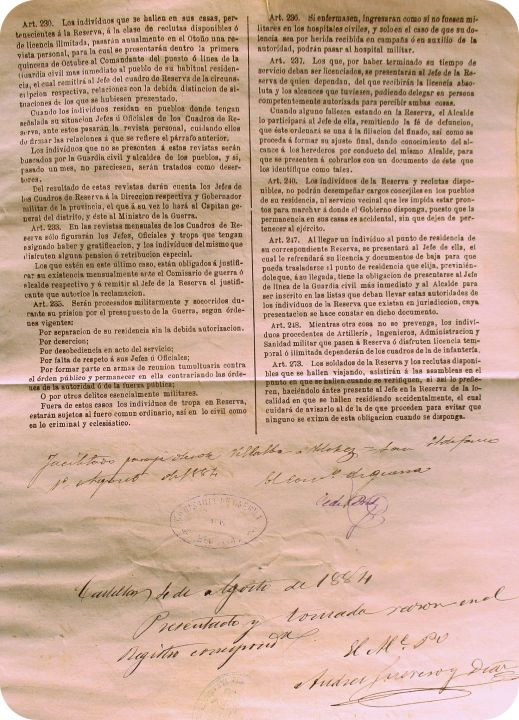 Art. 230. Los individuos que se hallen en sus casas, per-
tenecientes á la Reserva, á la clase de reclutas disponibles ó
de licencia ilimitada, pasarán anualmente en el Otoño una re-
vista personal, para la cual se presentarán dentro la primera
quincena de Octubre al Comandante del puesto ó línea de la
Guardia civil mas inmediato al pueblo de su habitual residen-
cia, el cual remitirá al Jefe del cuadro de Reserva de la circuns-
cripcion respectiva, relaciones con la debida distincion de si-
tuaciones de los que se hubiesen presentado.
Cuando los individuos residan en pueblos donde tengan
señalada su situacion Jefes ú Oficiales de los Cuadros de Re-
serva, ante estos pasarán la revista personal, cuidando ellos
de firmar las relaciones á que se refiere el párrafo anterior.
Los individuos que no se presenten á estas revistas serán
buscados por la Guardia civil y alcaldes de los pueblos, y si,
pasado un mes, no pareciesen, serán tratados como deser-
tores.
Del resultado de estas revistas darán cuenta los Jefes de
los Cuadros de Reserva á la Direccion respectiva y Gobernador
militar de la provincia, el que á su vez lo hará al Capitan ge-
neral del distrito, y éste al Ministro de la Guerra.
Art. 233. En las revistas mensuales de los Cuadros de Re-
serva sólo figurarán los Jefes, Oficiales y tropa que tengan
asignado haber y gratificacion, y los individuos del mismo que
disfruten alguna pension ó retribucion especial.
Los que estén en este último caso, están obligados á justifi-
car su existencia mensualmente ante el Comisario de guerra ó
alcalde respectivo y á remitir al Jefe de la Reserva el justifi-
cante que autorice la reclamacion.
Art. 235. Serán procesados militarmente y socorridos du-
rante su prision por el presupuesto de la Guerra, segun órde-
nes vigentes:
Por separacion de su residencia sin la debida autorizacion.
Por desercion;
Por desobediencia en acto del servicio;
Por falta de respeto á sus Jefes ú Oficiales;
Por formar parte en armas de reunion tumultuaria contra
el órden público y permanecer en ella contrariando las órde-
nes de la autoridad ó de la fuerza pública;
O por otros delitos esencialmente militares.
Fuera de estos casos los individuos de tropa en Reserva,
estarán sujetos al fuero comun ordinario, así en lo civil como
en lo criminal y eclesiástico.
Art. 236. Si enfermasen, ingresarán como si no fuesen mi-
litares en los hospitales civiles, y solo en el caso de que su do-
lencia sea por herida recibida en campaña ó en auxilio de la
autoridad, podrán pasar al hospital militar.
Art. 237. Los que, por haber terminado su tiempo de
servicio deban ser licenciados, se presentarán al Jefe de la Re-
serva de quien dependan, del que recibirán la licencia abso-
luta y los alcances que tuviesen, pudiendo delegar en persona
competentemente autorizada para percibir ambas cosas.
Cuando alguno falleciere estando en la Reserva, el Alcalde
lo participará al Jefe de ella, remitiendo la fé de defuncion,
que éste ordenará se una á la filiacion del finado, así como se
proceda á formar su ajuste final, dando conocimiento del al-
cance á los herederos por conducto del mismo Alcalde, para
que se presenten á cobrarlos con un documento de éste que
los identifique como tales.
Art. 240. Los individuos de la Reserva y reclutas dispo-
nibles, no podrán desempeñar cargos concejiles en los pueblos
de su residencia, ni servicio vecinal que les impida estar pron-
tos para marchar á donde el Gobierno disponga, puesto que la
permanencia en sus casas es accidental, sin que dejen de per-
tenecer al ejército.
Art. 247. Al llegar un individuo al punto de residencia de
su correspondiente Reserva, se presentará al Jefe de ella, el
cual le refrendará su licencia y documentos de baja para que
pueda trasladarse al punto de residencia que elija, previnién-
dole que, á su llegada, tiene la obligacion de presentarse al Jefe
de línea de la Guardia civil más inmediato y al Alcalde para
ser inscrito en las listas que deban llevar estas autoridades de
los individuos de la Reserva que existan en jurisdiccion, cuya
presentacion se hace constar en dicho documento.
Art. 248. Mientras otra cosa no se prevenga, los indivi-
duos procedentes de Artillería, Ingenieros, Administracion y
Sanidad militar que pasen á Reserva ó disfruten licencia tem-
poral ó ilimitada dependerán de los cuadros de la de infantería.
Art. 273. Los soldados de la Reserva y los reclutas disponi-
bles que se hallen viajando, asistirán á las asambleas en el
punto en que se hallen cuando se verifiquen, si así lo prefie-
ren, haciéndolo ántes presente al Jefe en la Reserva de la lo-
calidad en que se hallen residiendo accidentalmente, el cual
cuidará de avisarlo al de la que proceden para evitar que
ninguno se exima de esta obligacion cuando se disponga.
1º Agosto de 1884
COMISARIA DE GUERRA
Castellon 4 de Agosto de 1884
Presentado y tomada razon en el
Registro correspondte
El
Andres Guerrero y Diaz